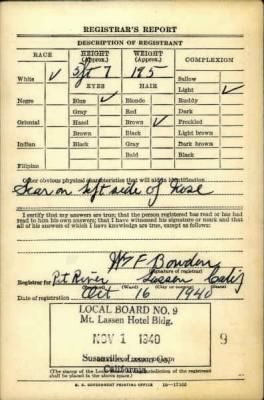 REGISTRAR'S REPORT
DESCRIPTION OF REGISTRANT
RACE HEIGHT (Approx.) WEIGHT (Approx.) COMPLEXION
5ft 7 185
White ✓ Sallow
EYES HAIR Light ✓
Negro Blue ✓ Blonde Ruddy
Gray Red Dark
Oriental Hazel Brown ✓ Freckled
Brown Black Light brown
Indian Black Gray Dark brown
Bald Black
Filipino
Other obvious physical characteristics that will aid in identification
Scar on left side of Nose
I certify that my answers are true; that the person registered has read or has had
read to him his own answers; that I have witnessed his signature or mark and that
all of his answers of which I have knowledge are true, except as follows:
Wm F Bowden
(Signature of registrar)
Registrar for Pit River Lassen Calif
(Ward) (City or county) (State)
Date of registration Oct 16 1940
LOCAL BOARD NO. 9
Mt. Lassen Hotel Bldg.
NOV 1 1940 9
Susanville, Lassen Co.,
California
(The stamp of the Local Board having jurisdiction of the registrant
shall be placed in the above space)
U. S. GOVERNMENT PRINTING OFFICE 16-17105